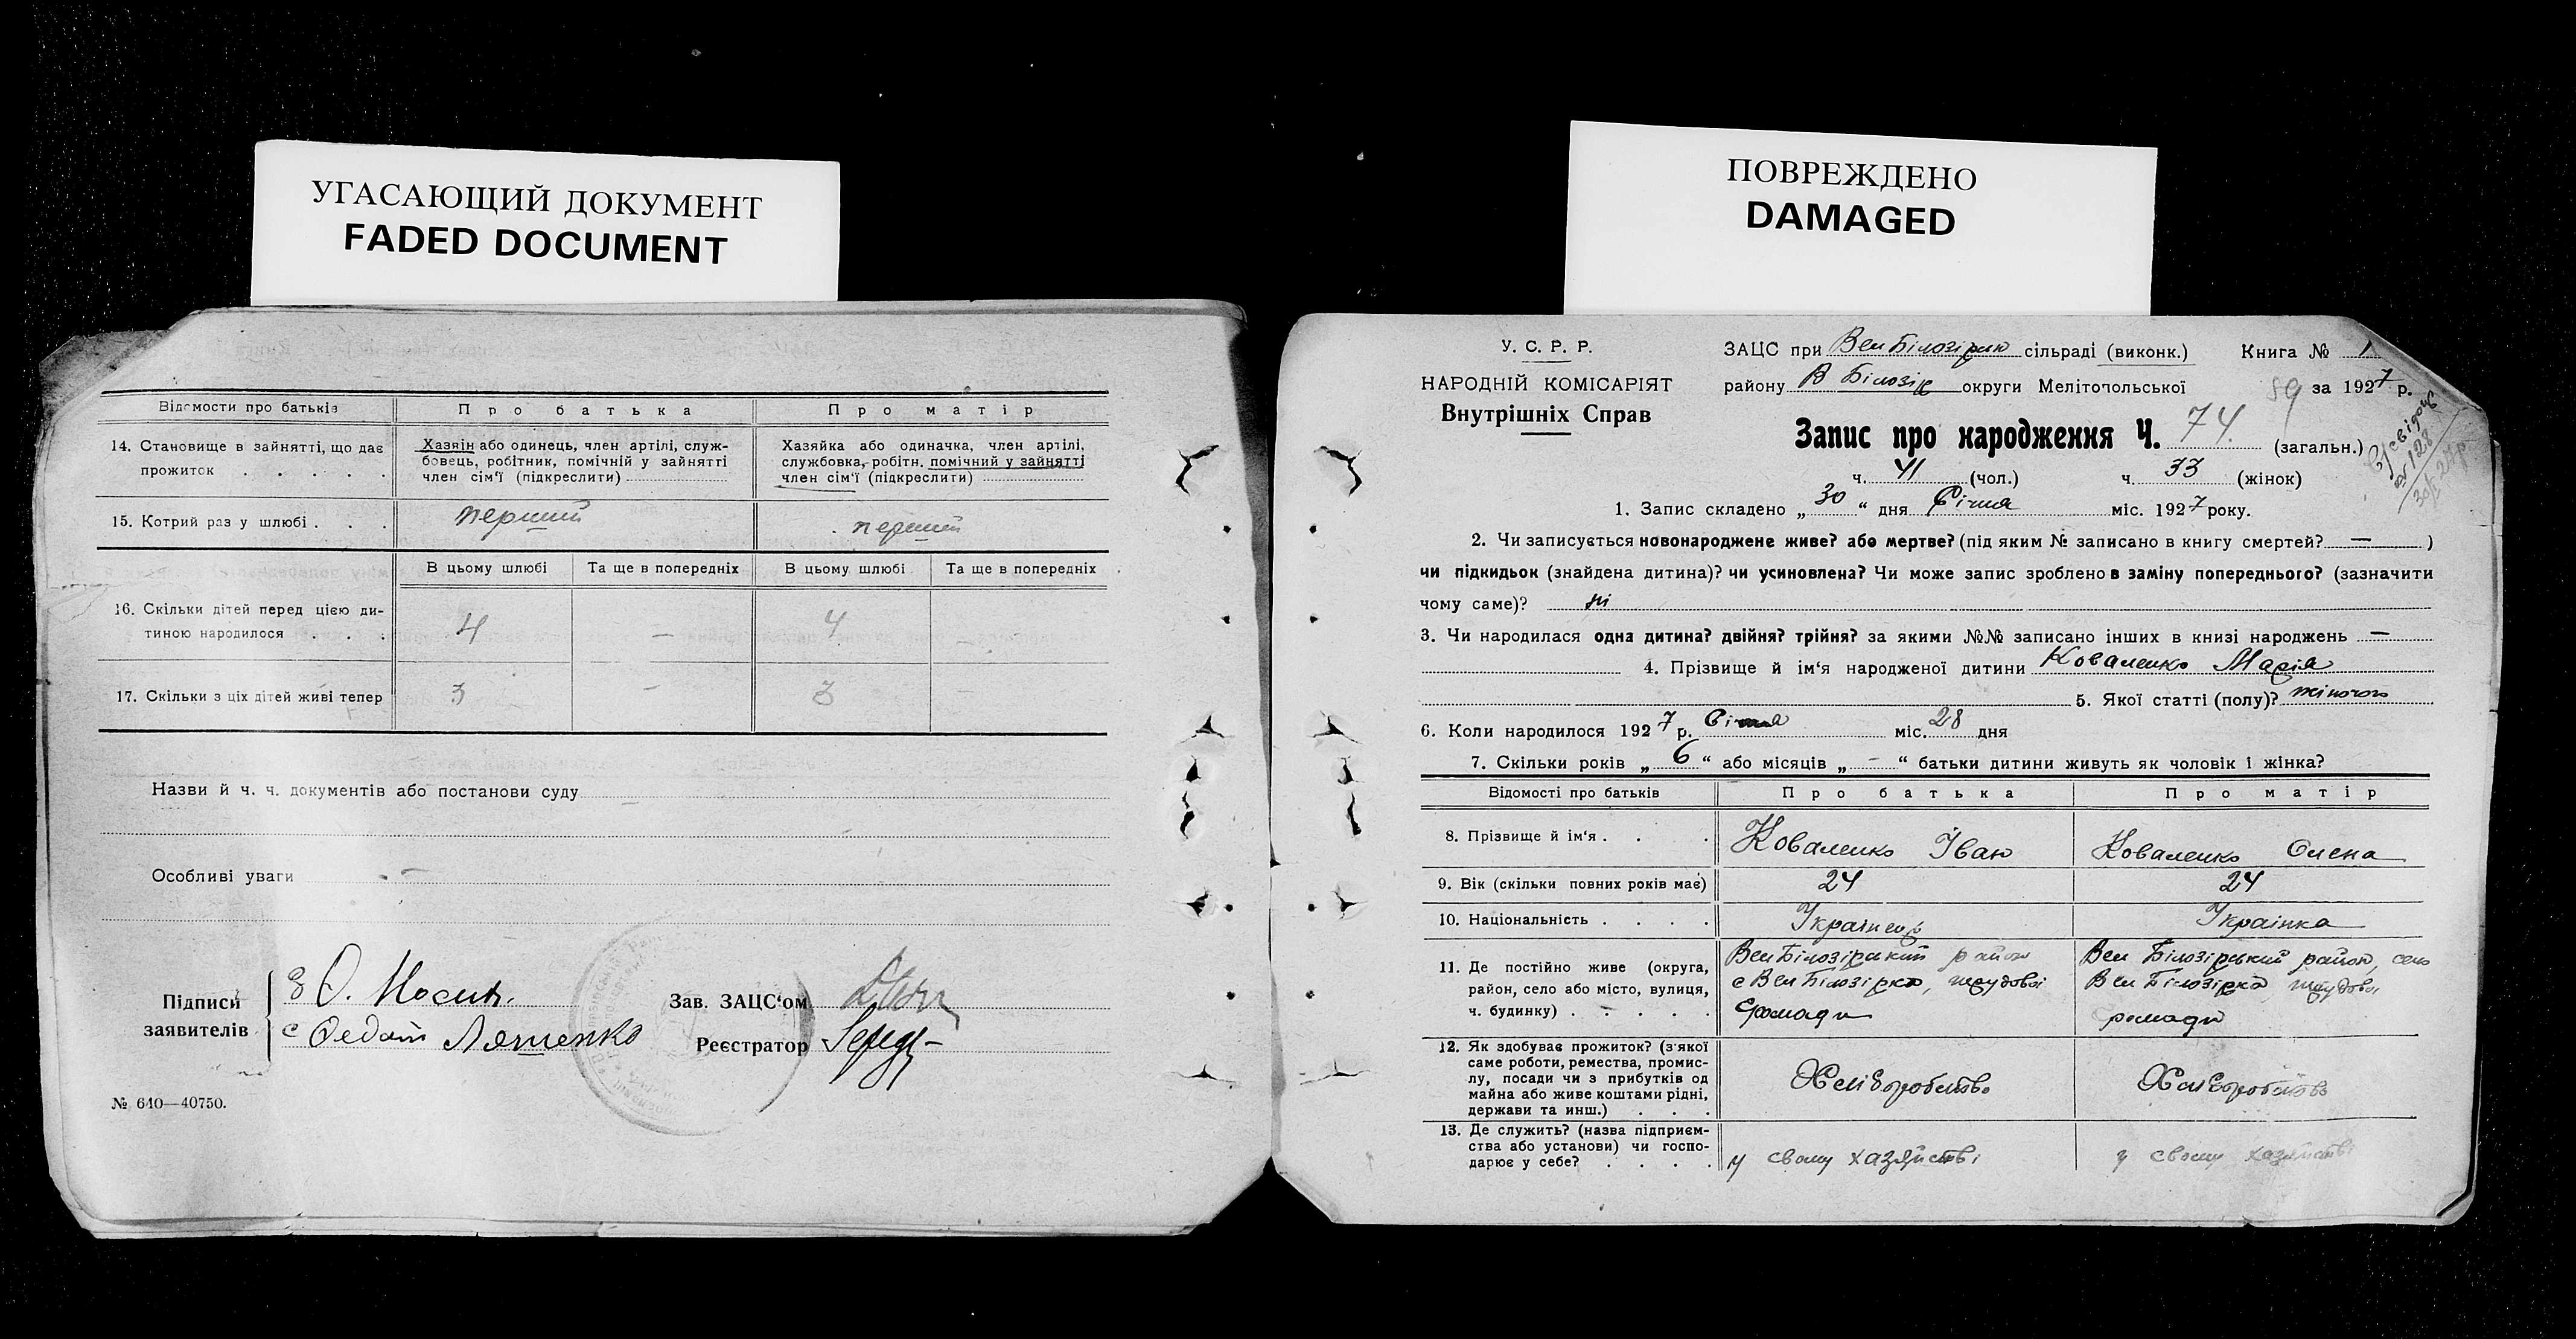 УГАСАЮЩИЙ ДОКУМЕНТ
FADED DOCUMENT
Відомости про батьків
Про батька
Про матір
14. Становище в зайнятті, що дає
прожиток . . . . .
Хазяін або одинець, член артілі, служ-
бовець, робітник, помічній у зайнятті
член сім'ї (підкреслити)
Хазяйка або одиначка, член артілі,
службовка, робітн. помічний у зайнятті
член сім'ї (підкреслити)
15. Котрий раз у шлюбі . . .
перший
перший
В цьому шлюбі
Та ще в попередніх
В цьому шлюбі
Та ще в попередніх
16. Скільки дітей перед цією ди-
тиною народилося . . .
4 — 4 —
17. Скільки з ціх дітей живі тепер
3 — 3 —
Назви й ч. ч. документів або постанови суду —
Особливі уваги —
Підписи
заявителів
О. Носик.
Федот Ляшенко
Зав. ЗАЦС'ом
Реєстратор
№ 640—40750.
ПОВРЕЖДЕНО
DAMAGED
У. С. Р. Р.
НАРОДНІЙ КОМІСАРІЯТ
Внутрішніх Справ
ЗАЦС при Вел Білозірск сільраді (виконк.) Книга № 1
району В Білозір округи Мелітопольської 89 за 1927 р.
Запис про народження Ч. 74. (загальн.)
ч. 41 (чол.) ч. 33 (жінок)
№ 128
1. Запис складено „ 30 “ дня Січня міс. 1927 року.
2. Чи записується новонароджене живе? або мертве? (під яким № записано в книгу смертей? — )
чи підкидьок (знайдена дитина)? чи усиновлена? Чи може запис зроблено в заміну попереднього? (зазначити
чому саме)? ні
3. Чи народилася одна дитина? двійня? трійня? за якими №№ записано інших в книзі народжень —
4. Прізвище й ім'я народженої дитини Коваленко Марія
5. Якої статті (полу)? жіночого
6. Коли народилося 1927 р. Січня міс. 28 дня
7. Скільки років „ 6 “ або місяців „ - “ батьки дитини живуть як чоловік і жінка?
Відомості про батьків
Про батька
Про матір
8. Прізвище й ім'я . . .
Коваленко Іван
Коваленко Олена
9. Вік (скільки повних років має)
24
24
10. Національність . . . .
Українець
Українка
11. Де постійно живе (округа,
район, село або місто, вулиця,
ч. будинку) . . . . .
Вел Білозірський район
с Вел Білозірка, трудової
громади
Вел Білозірський район, село
Вел Білозірка, трудової
громади
12. Як здобуває прожиток? (з якої
саме роботи, ремества, промис-
лу, посади чи з прибутків од
майна або живе коштами рідні,
держави та инш.) . . .
Хліборобство
Хліборобство
13. Де служить? (назва підприєм-
ства або установи) чи госпо-
дарює у себе? . . . .
у свому хазяйстві
у свому хазяйстві